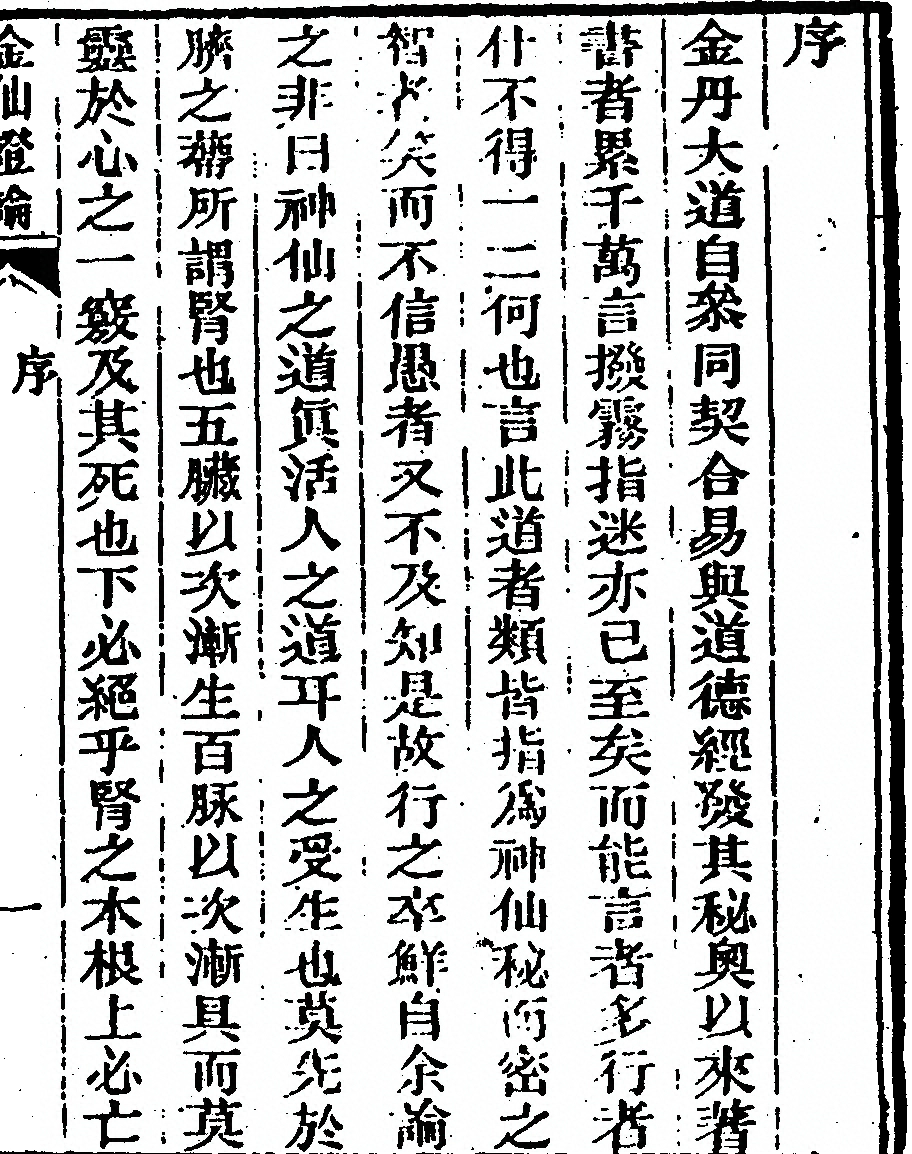 序
金丹大道自叅同契合易與道德經發其秘奧以來著
書者累千萬言撥霧指迷亦已至矣而能言者多行者
什不得一二何也言此道者類皆指爲神仙秘而密之
智者笑而不信愚者又不及知是故行之卒鮮自余論
之非曰神仙之道眞活人之道耳人之受生也莫先於
臍之蔕所謂腎也五臟以次漸生百脉以次漸具而莫
靈於心之一竅及其死也下必絕乎腎之木根上必亡
金仙證論
序
一